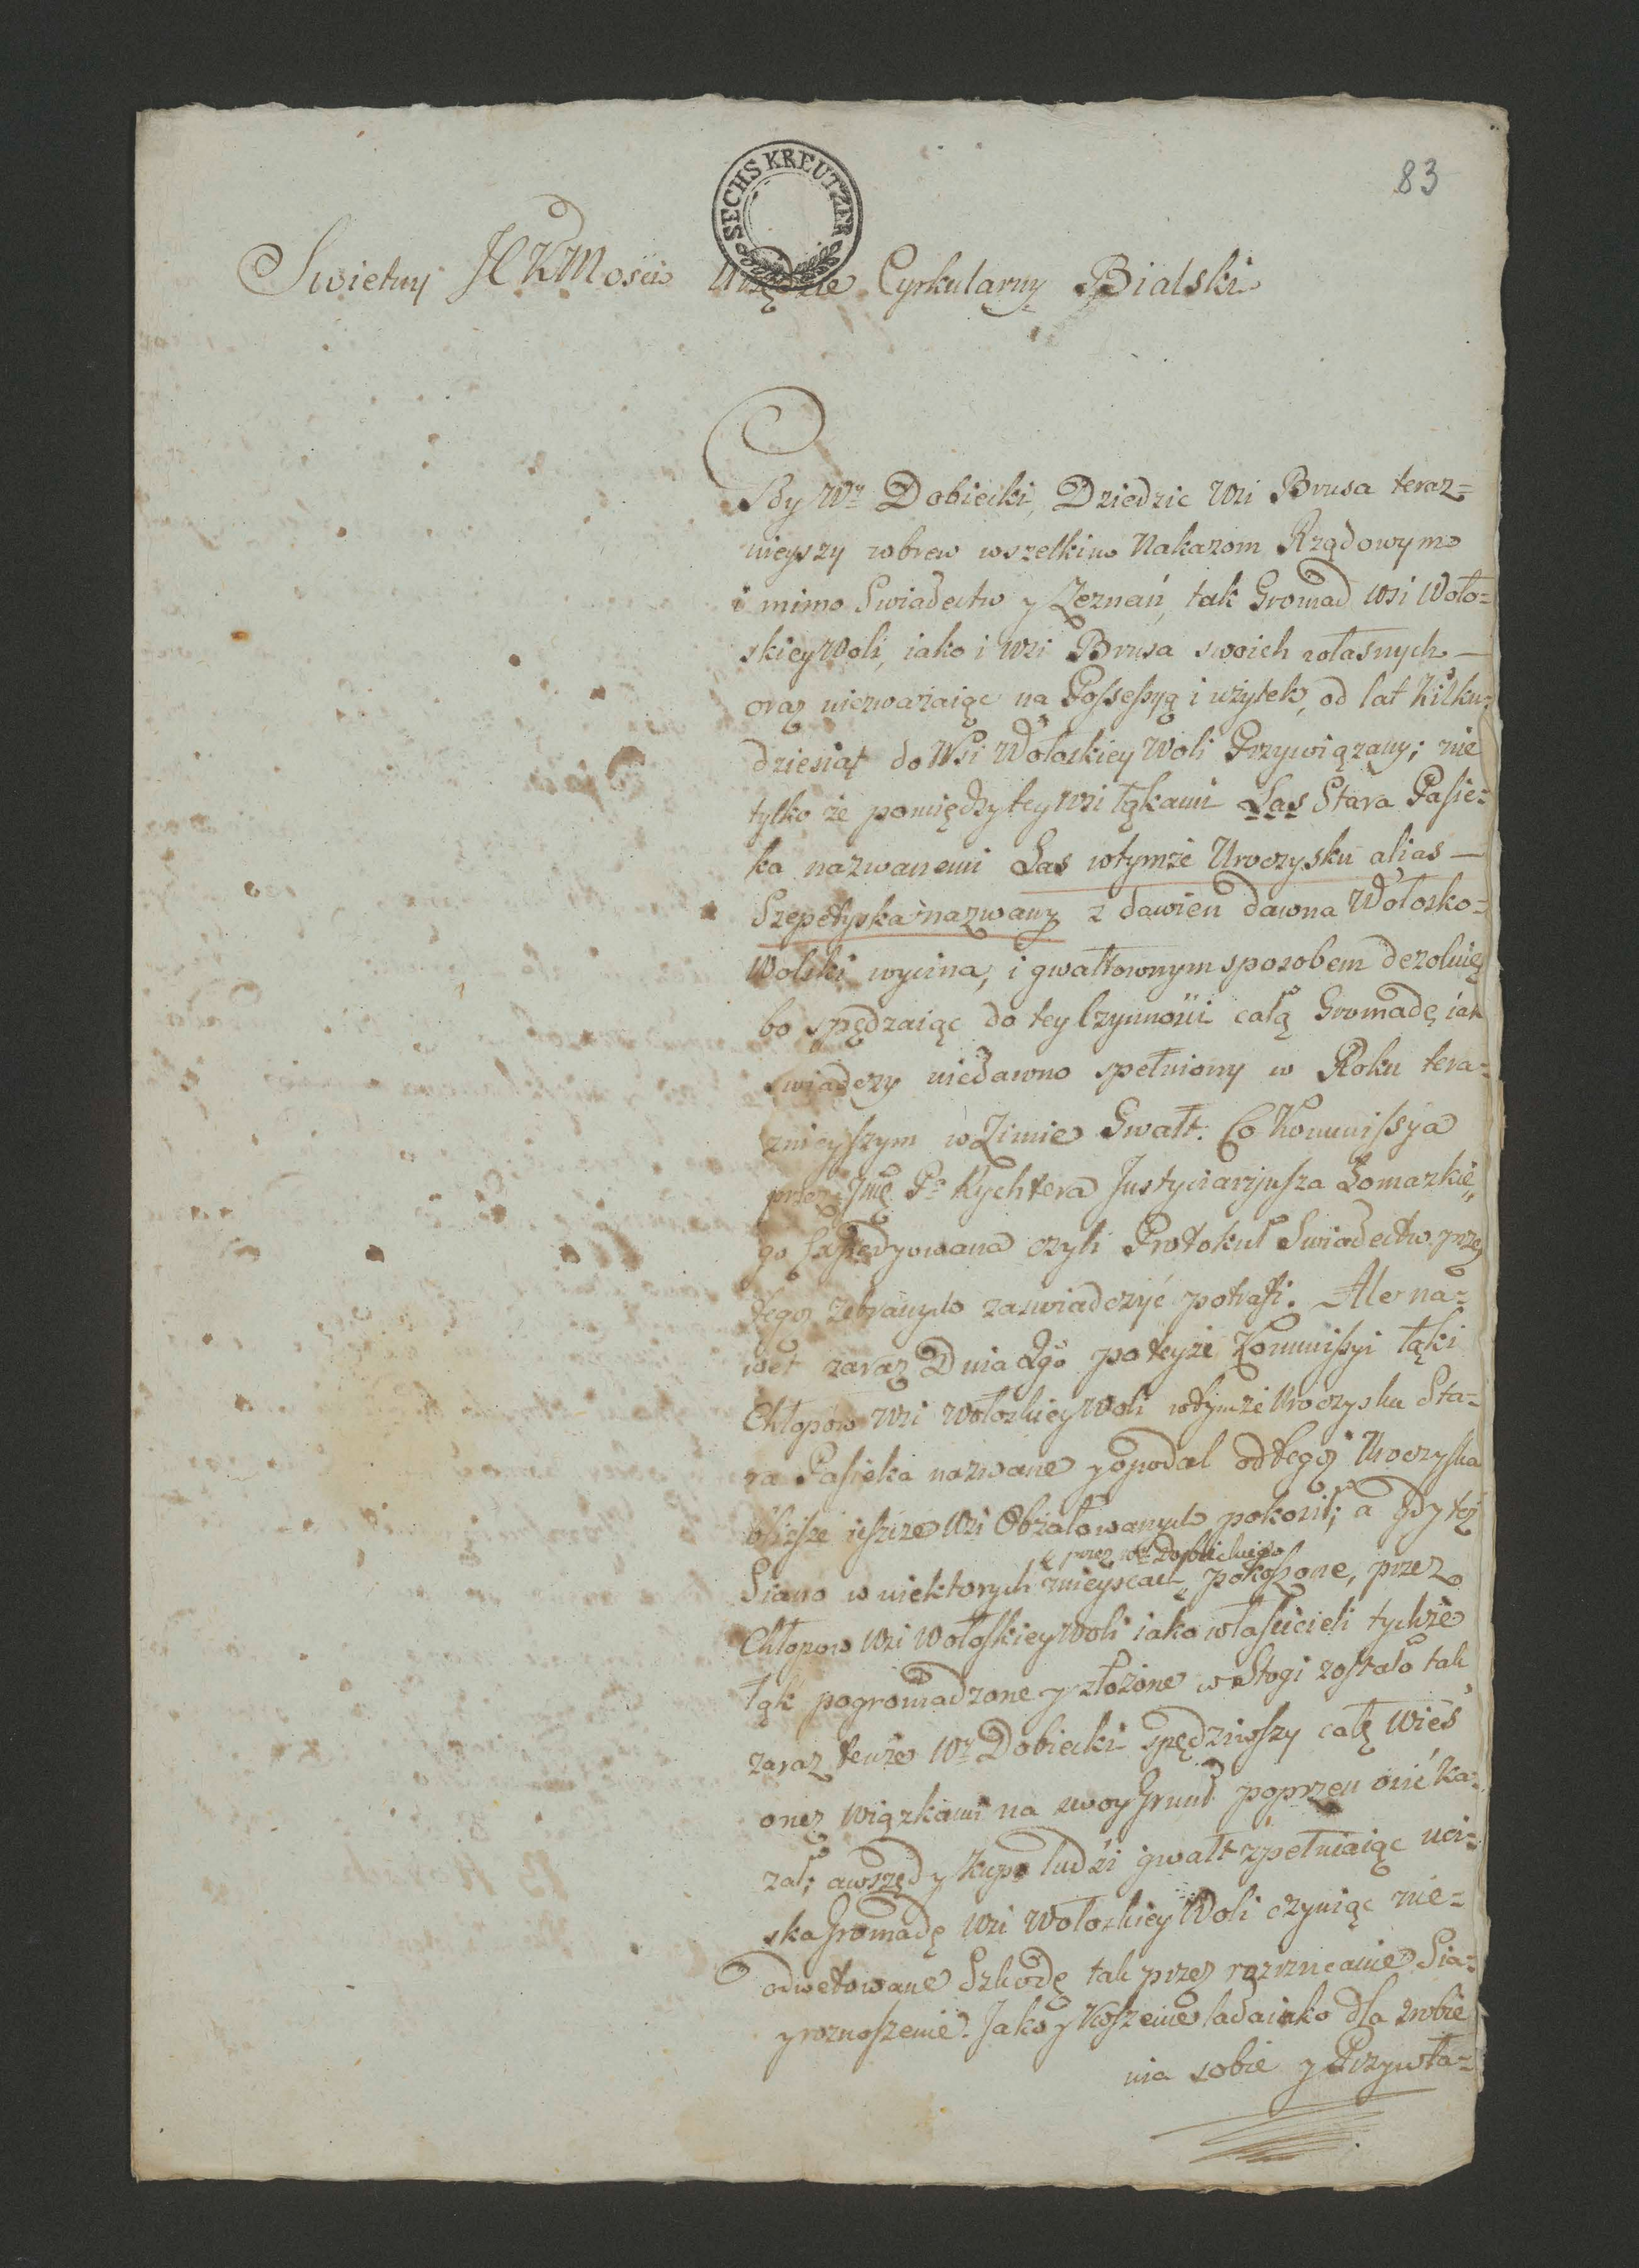 83
SECHS KREUTZER
Swietny JCKMości Urzędzie Cyrkularny Bialski
Gdy Wy Dobiecki, Dziedzic Wsi Brusa teraz=
nieyszy wbrew wszelkim Nakazom Rządowym
i mimo Swiadectw y Zeznań, tak Gromad Wsi Woło=
skiey Woli, iako i Wsi Brusa swoich własnych —
oraz niezważaiąc na Possessyą i użytek, od lat kilku=
dziesiąt do Wsi Wołoskiey Woli Przywiązany; nie
tylko że pomiędzy tey Wsi łąkami Las Stara Pasie=
ka nazwanemi Las wtymże Uroczysku alias —
Szepetyska nazwany z dawien dawna Wołosko=
Wolski wycina, i gwałtownym sposobem dezoluie
bo spędzaiąc do tey Czynności całą Gromadę, iak
swiadczy niedawno spełniony w Roku tera=
znieyszym w Zimie Gwałt. Co Kommissya
przez Jmę Pa Rychtera Justyciaryusza Łomazkie„
go Expedyowana czyli Protokuł Swiadectw przez
tegoż zebranych zaswiadczyć potrafi. Ale na=
wet zaraz Dnia 2go po teyże Kommissyi łąki
Chłopow Wsi Wołoskiey Woli wtymże Uroczysku Sta=
ra Pasieka nazwane y opodal od tegoż Uroczyska
bliższe ieszcze Wsi Obżałowanych pokosił; a gdy też
przez Wo Dobieckiego
Siano w niektorych mieyscach pokoszone, przez
Chłopow Wsi Wołoskiey Woli iako własicieli tychże
łąk pogromadzone y złożone w Stogi zostało tak
zaraz tenże Wy Dobiecki spędziwszy całą Wieś
onez wiązkami na swoy Grunt poprzenosić ka=
zał; a wszędy kupą ludzi gwałt spełniaiąc uci=
ska Gromadę Wsi Wołoskiey Woli czyniąc nie=
odwetowane Szkodę tak przez rozrzucanie Sia=
y roznoszenie. Jako y Koszenie ladaiako dla zrobie
nia sobie y Przywła=